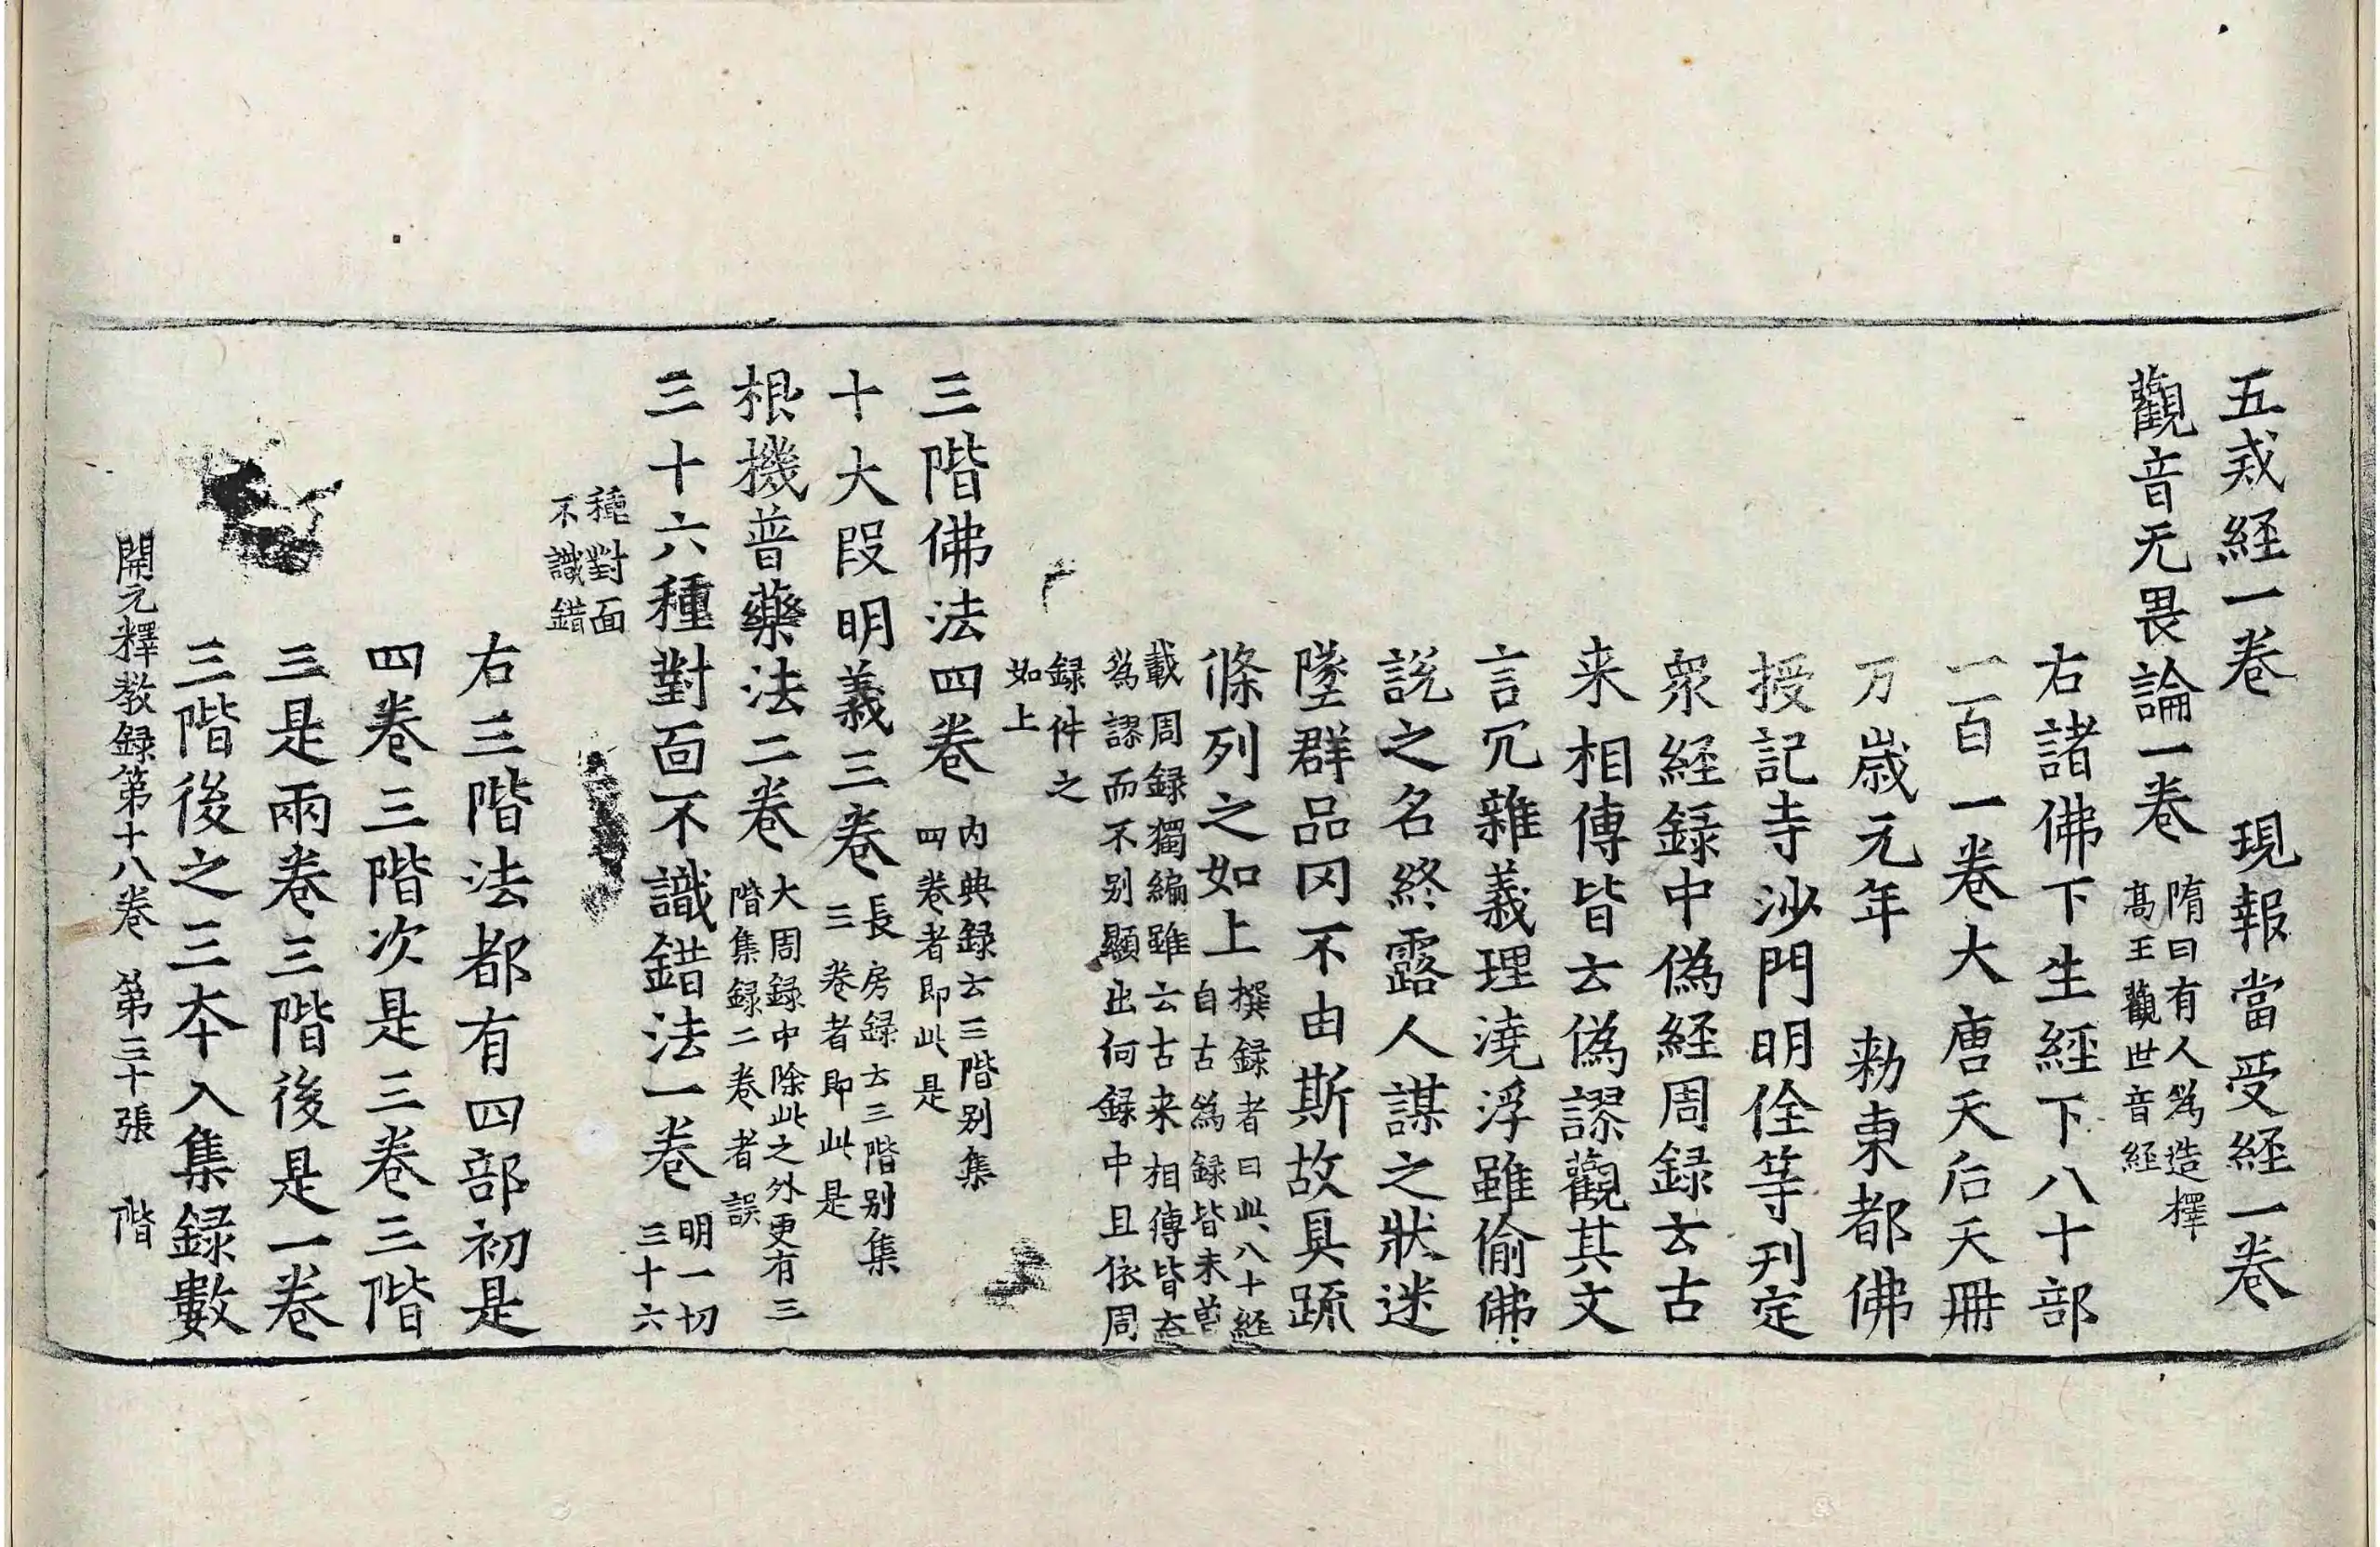 五戒経一卷　現報當受経一卷
觀音无畏論一卷
隋曰有人爲造擇
髙王觀世音經
右諸佛下生経下八十部
一百一卷大唐天后天冊
万歳元年　勑東都佛
授記寺沙門明佺等刊定
衆経録中偽経周録云古
来相傳皆云偽謬觀其文
言冗雜義理澆浮雖偷佛
説之名終露人謀之狀迷
墜群品冈不由斯故具䟽
條列之如上
撰録者曰此八十経
自古爲録皆未曽
載周録獨編雖云古来相傳皆
爲謬而不别顯出何録中且依周
録件之
如上
三階佛法四卷
内典録云三階别集
四卷者即此是
十大段明義三卷
長房録云三階别集
三卷者即此是
根機普藥法二卷
大周録中除此之外更有三
階集録二卷者誤
三十六種對面不識錯法一卷
明一切
三十六
種對面
不識錯
右三階法都有四部初是
四卷三階次是三卷三階
三是兩卷三階後是一卷
三階後之三夲入集録數
開元釋教録第十八卷　第三十張　階